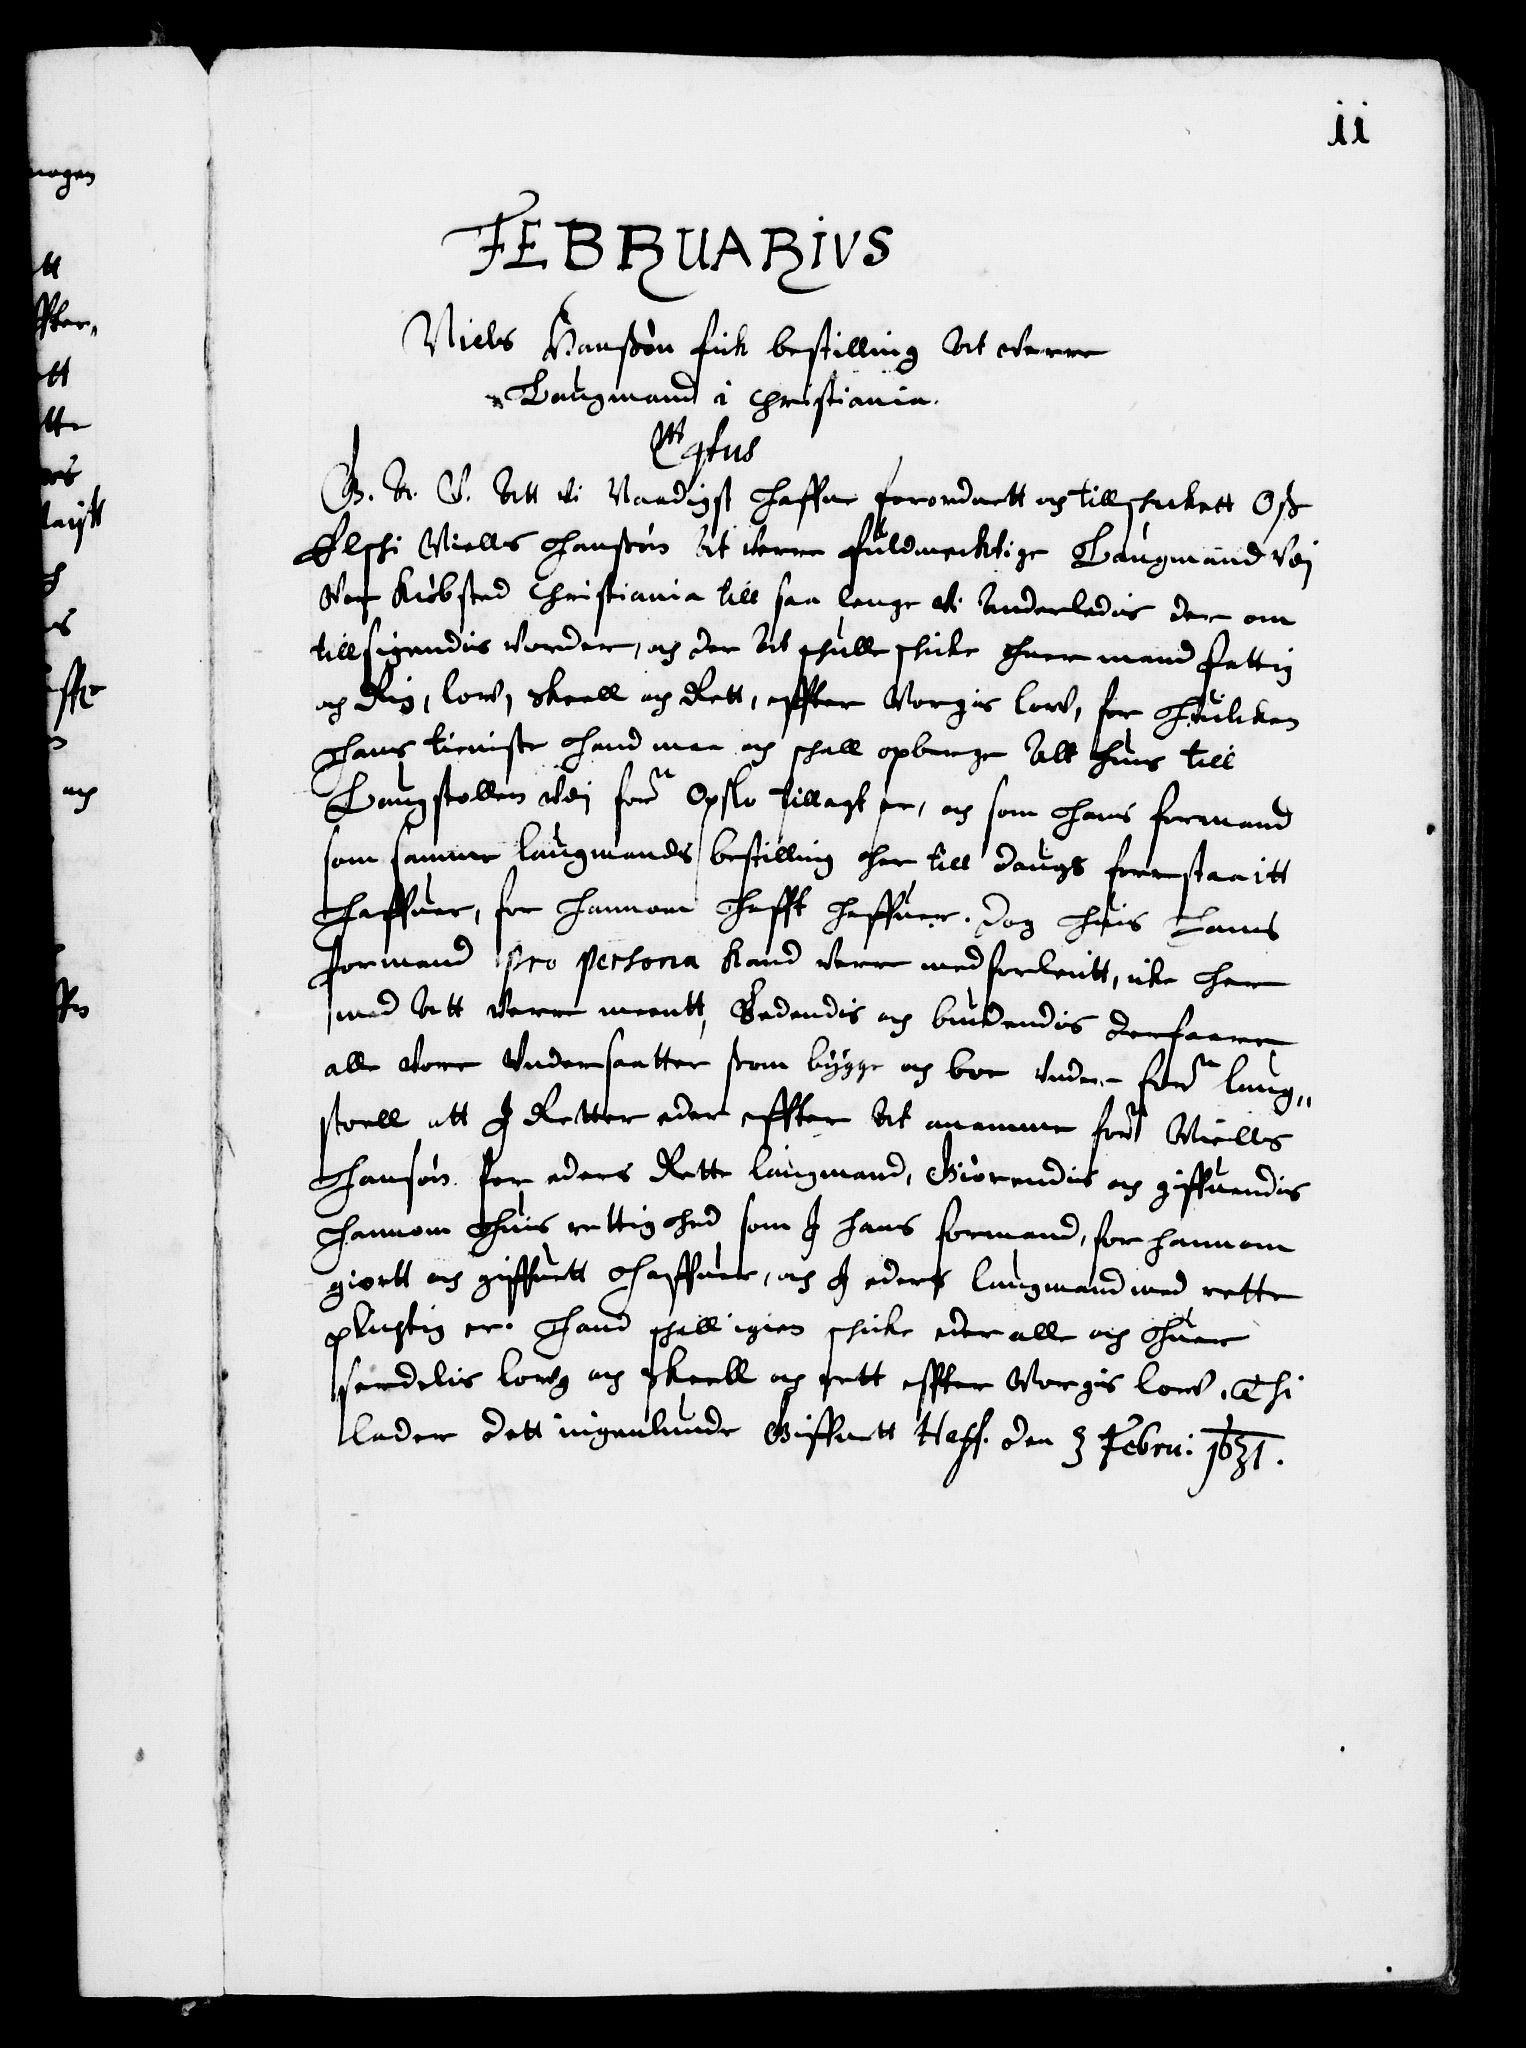 ii
FEBRUARIVS
Niels Hanssøn fick bestilling At verre
Laugmand i Christiania.
G. A. V. Att vi Naadigst haffue forordnett och tillschickett Oss
Elschl Niells Hanssøn At verre fuldmecktige Laugmand Vdi
Vor Kiøbsted Christiania till saa lenge vi Anderledis der om
tillsigendis vorder, och der At schulle schicke huer mand fattig
och Rig, low, skeell och Rett, effter Norgis low, for huilcken
hans tieniste hand maa och schall opberge Alt huis till
Laugstollen vdj forne Opslo tillagt er, och som hans formand
som samme laugmands bestilling her till daugs forestaaitt
haffuer, for hannom hafft haffuer. Dog huis hans
formand pro persona kand verre med forlentt, icke her
med Att verre meentt, Bedendis och biudendis derfaare
alle vore Vndersaatter som bygge och boe vnder forne laug„
stoell att I Retter eder effter At anamme forne Niells
Hansøn for eders Rette laugmand, Giørendis och giffuendis
hannom huis rettighed som I hans formand, for hannom
giortt och giffuett haffuer, och I eders laugmand med rette
plichtig er. Hand schall igien schicke eder alle och huer
serdelis lowg och skeell och rett effter Norgis low. Thi
lader dett ingenlunde Giffuett Haff. den 3 Febru: 1631.
nogen
tt
ffter„
ett
och